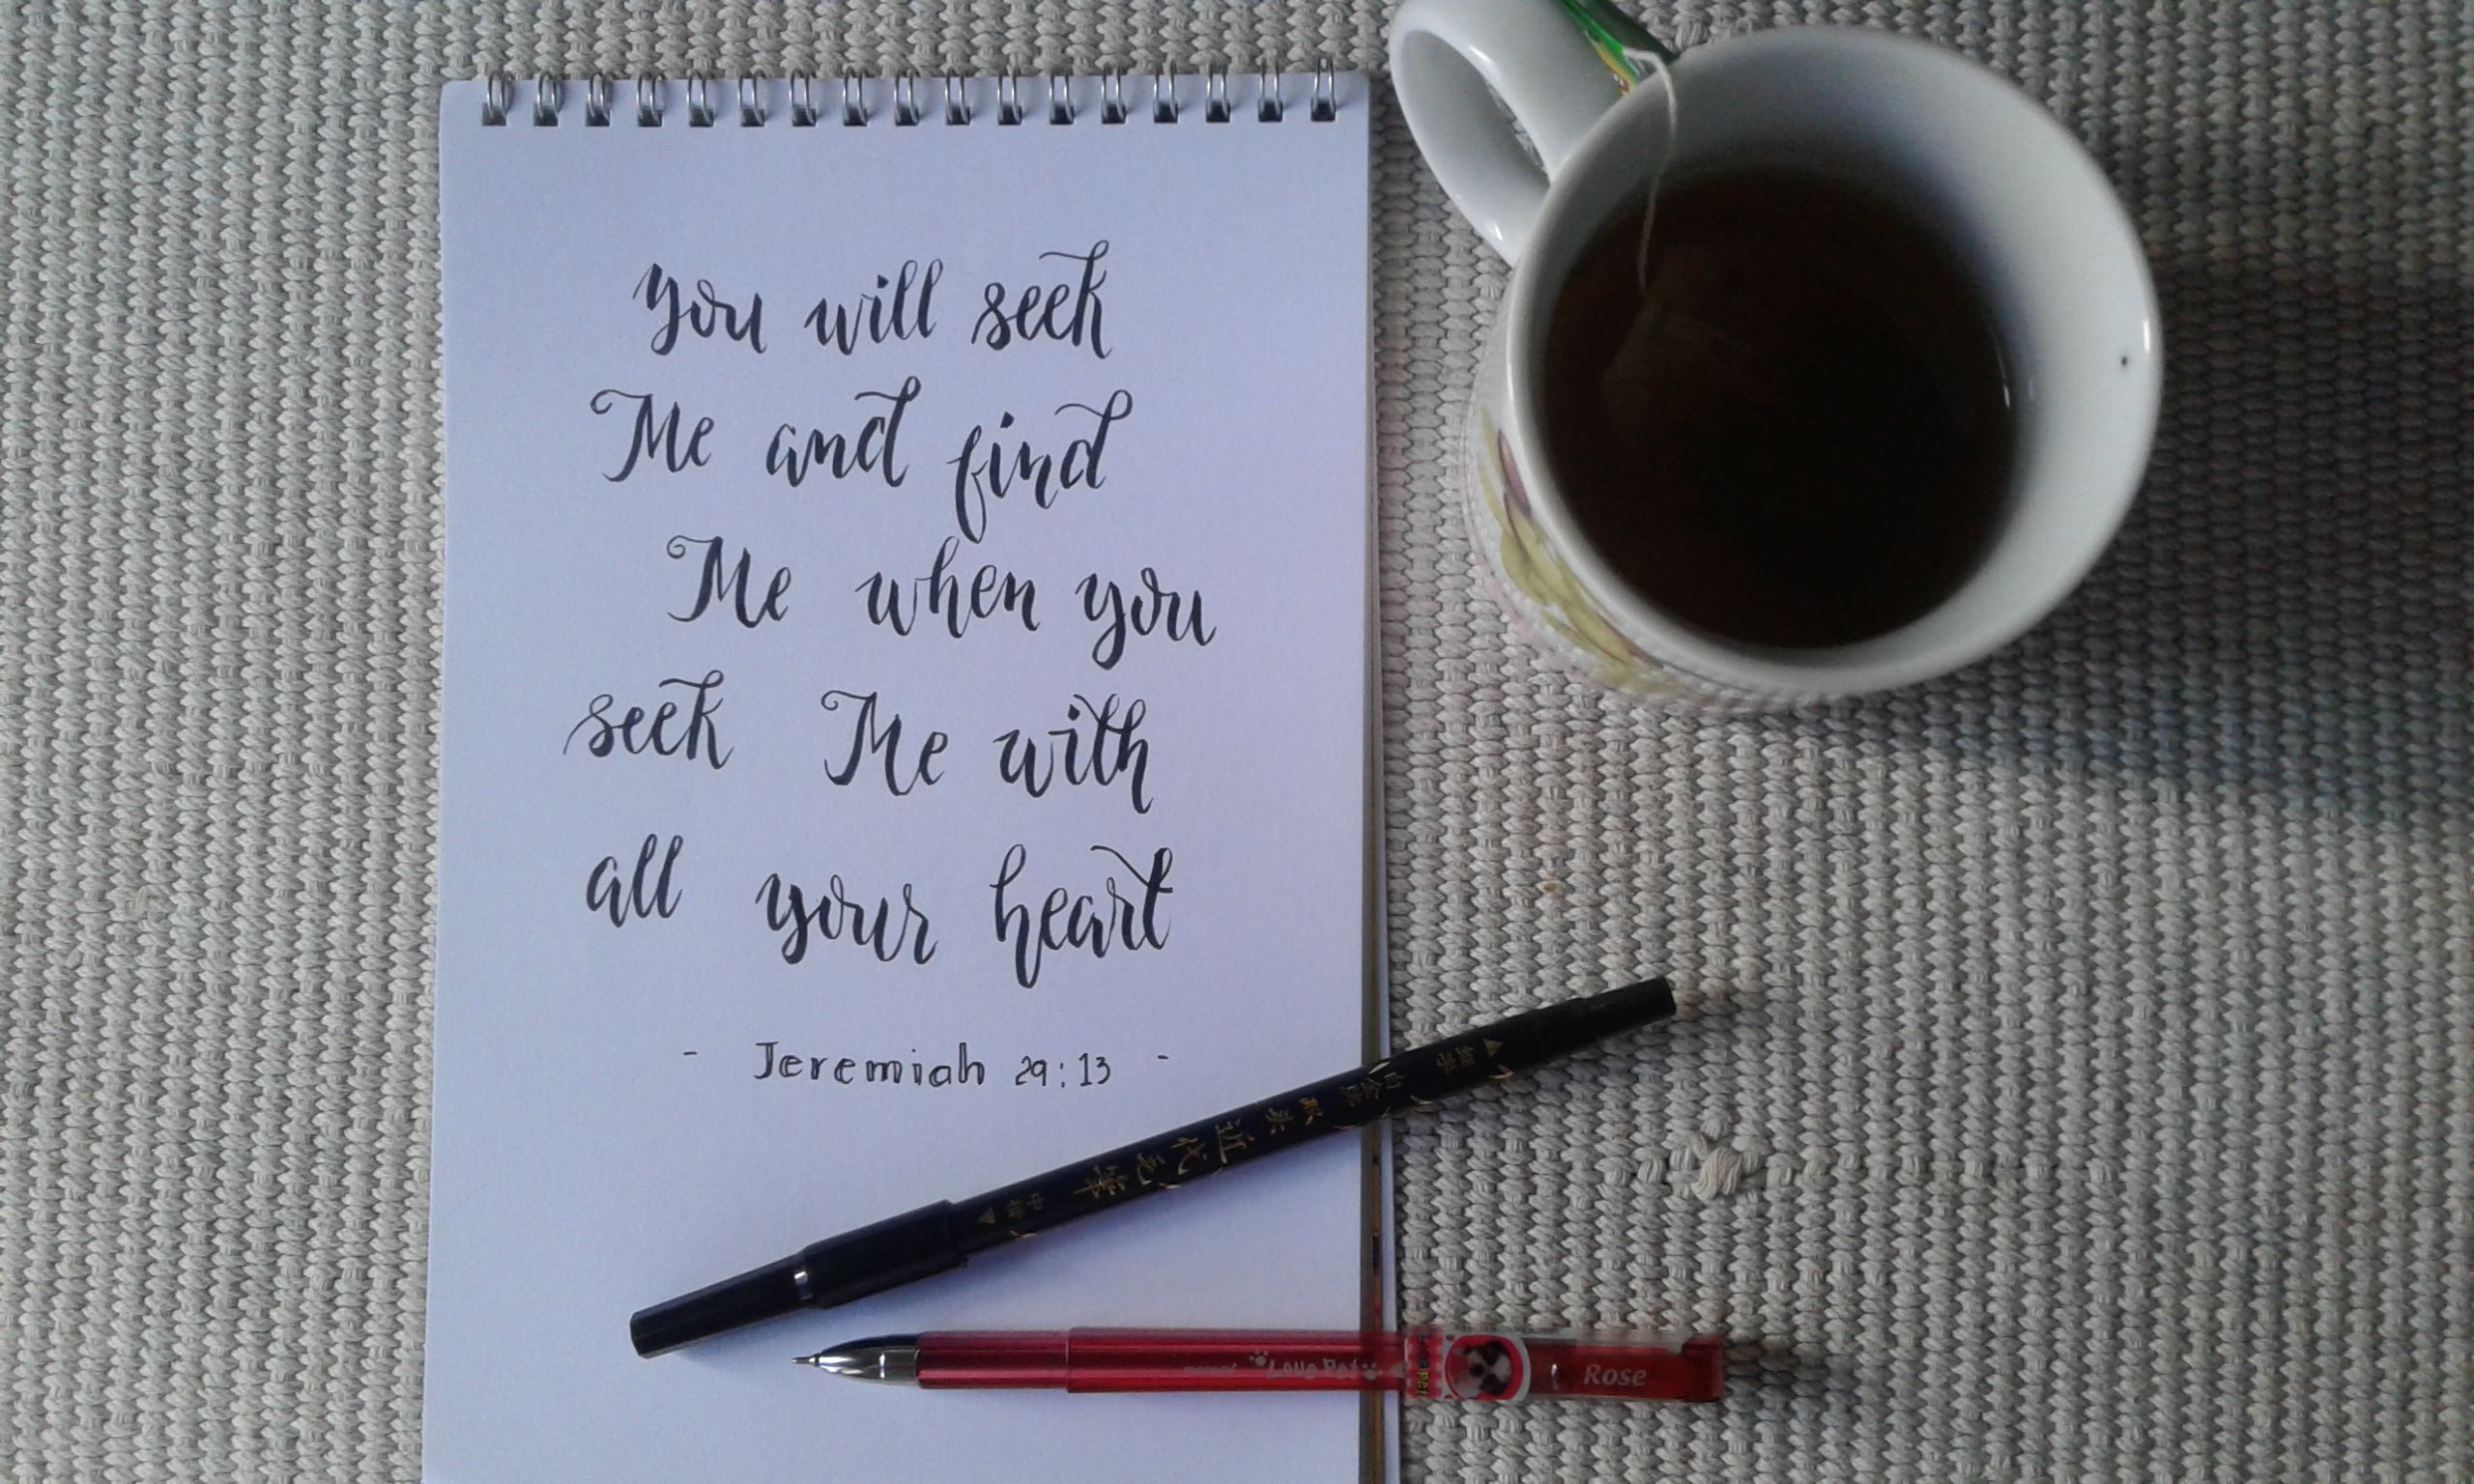 you will seek
Me and find
Me when you
seek Me with
all your heart
- Jeremiah 29:13 -
近代毛筆
Love Pet
Rose